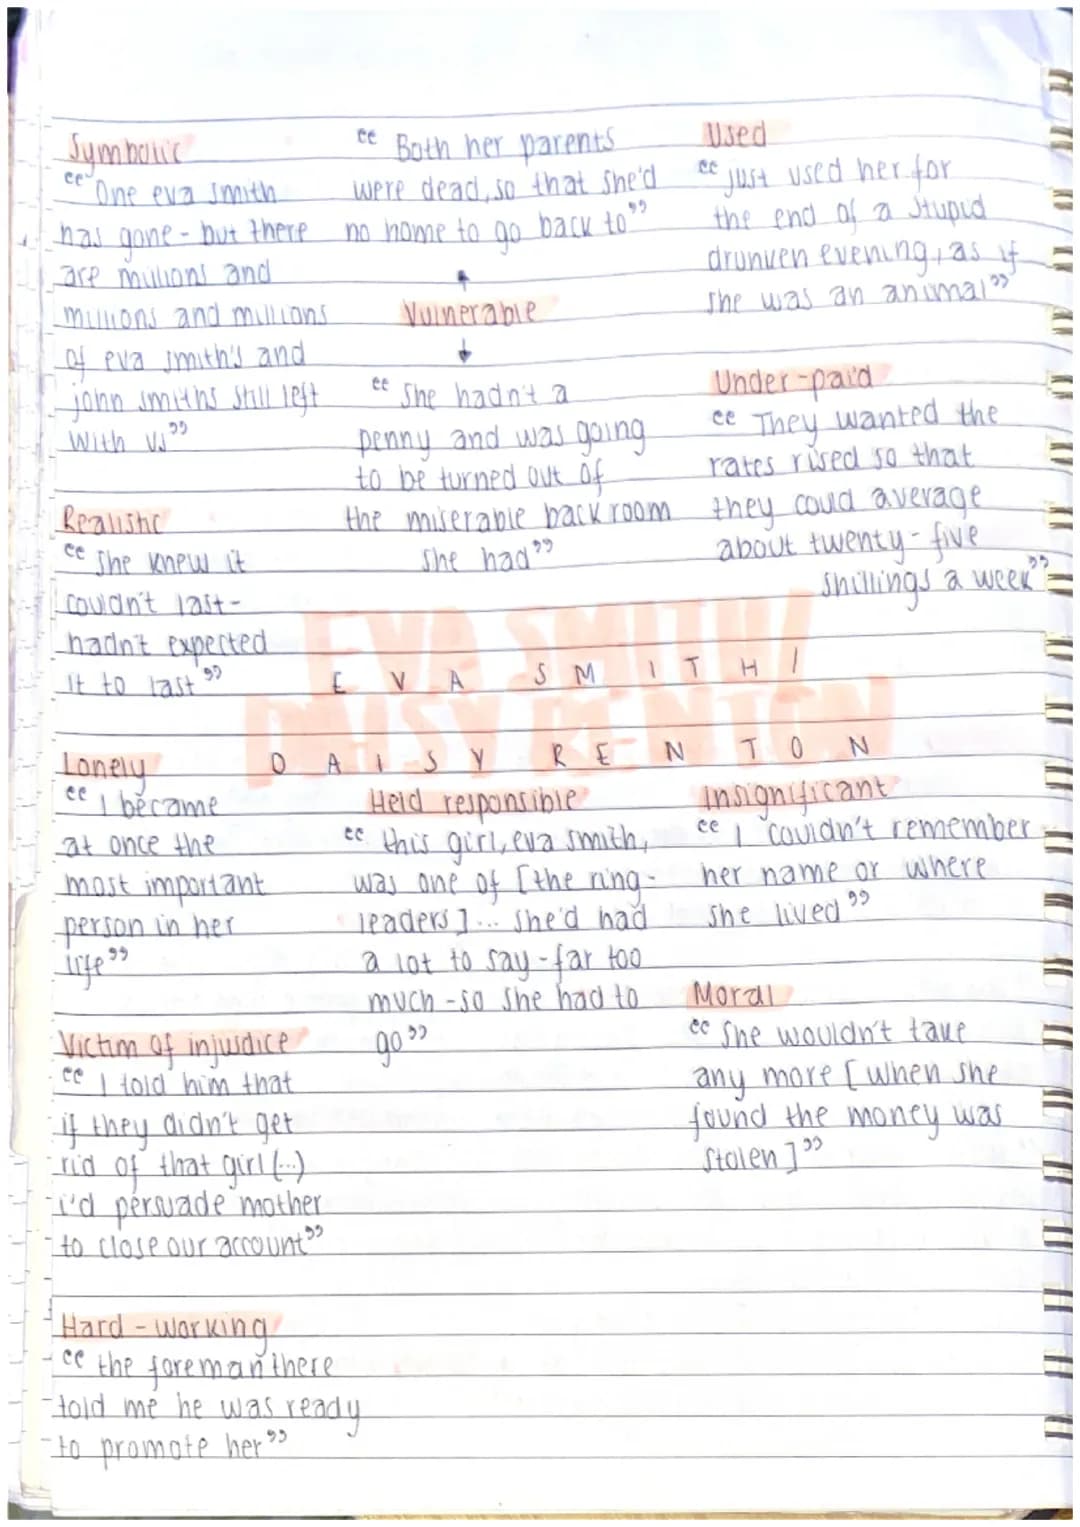 Symbolic
“One eva smith
has gone - but there
are millions and
millions and millions
of eva smith's and
john smiths still left
with us”
Realistic
“She knew it
couldn't last -
hadn't expected
it to last”
“Both her parents
were dead, so that she'd
no home to go back to”
Vulnerable
“She hadn't a
penny and was going
to be turned out of
the miserable back room
she had”
Used
“just used her for
the end of a stupid
drunken evening, as if
she was an animal”
Under-paid
“They wanted the
rates rised so that
they could average
about twenty-five
shillings a week”
EVA SMITH/
DAISY RENTON
Lonely
“I became
at once the
most important
person in her
life”
Victim of injusdice
“I told him that
if they didn't get
rid of that girl (...)
i'd persuade mother
to close our account”
Hard-working
“the foreman there
told me he was ready
to promote her”
Held responsible
“this girl, eva smith,
was one of [the ring-
leaders]... she'd had
a lot to say - far too
much - so she had to
go”
Insignificant
“I couldn't remember
her name or where
she lived”
Moral
“She wouldn't take
any more [when she
found the money was
stolen]”